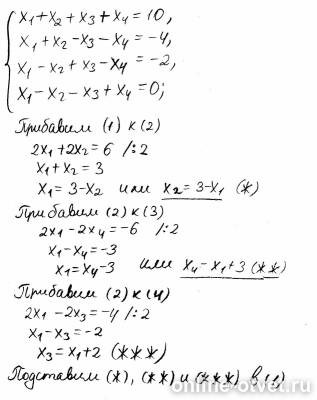 x₁+x₂+x₃+x₄=10,
x₁+x₂-x₃-x₄=-4,
x₁-x₂+x₃-x₄=-2,
x₁-x₂-x₃+x₄=0;
Прибавим (1) к (2)
2x₁+2x₂=6 /:2
x₁+x₂=3
x₁=3-x₂ или x₂=3-x₁ (*)
Прибавим (2) к (3)
2x₁-2x₄=-6 /:2
x₁-x₄=-3
x₁=x₄-3 или x₄-x₁+3 (**)
Прибавим (2) к (4)
2x₁-2x₃=-4 /:2
x₁-x₃=-2
x₃=x₁+2 (***)
Подставим (*), (**) и (***) в (1)
online-otvet.ru